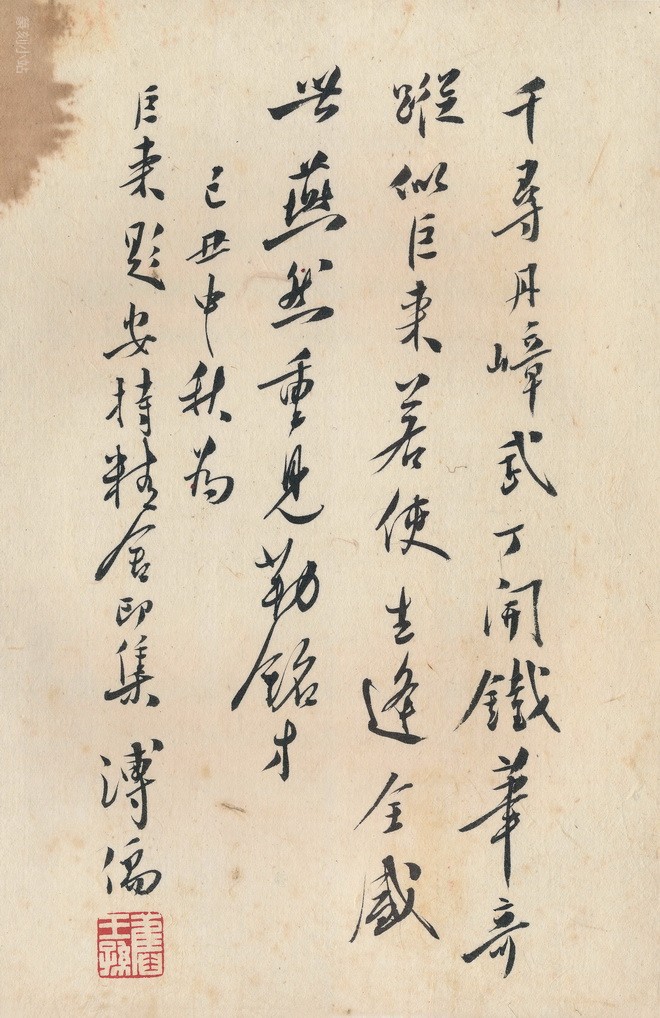 千尋丹嶂武丁開鐵筆奇
蹤似巨來若使生逢全盛
世燕然重見勒銘才
己丑中秋為
巨來題安持精舍印集 溥儒
舊王孫
篆刻小站